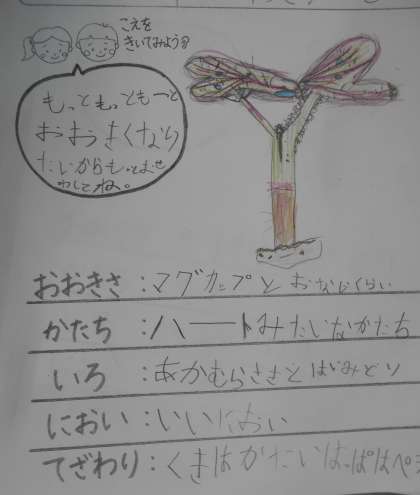 こえを
きいてみよう
もっともっともーっと
おおきくなり
たいからも
ね。
おおきさ:マグカップとおなじくらい
かたち:ハートみたいなかたち
いろ:あかむらさきときみどり
におい:いいにおい
てざわり:くきはかたいはっぱは